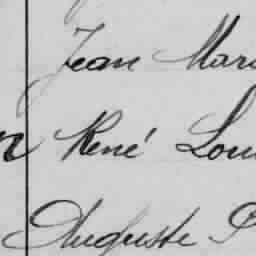 Jean Mari
René Lou
Auguste P